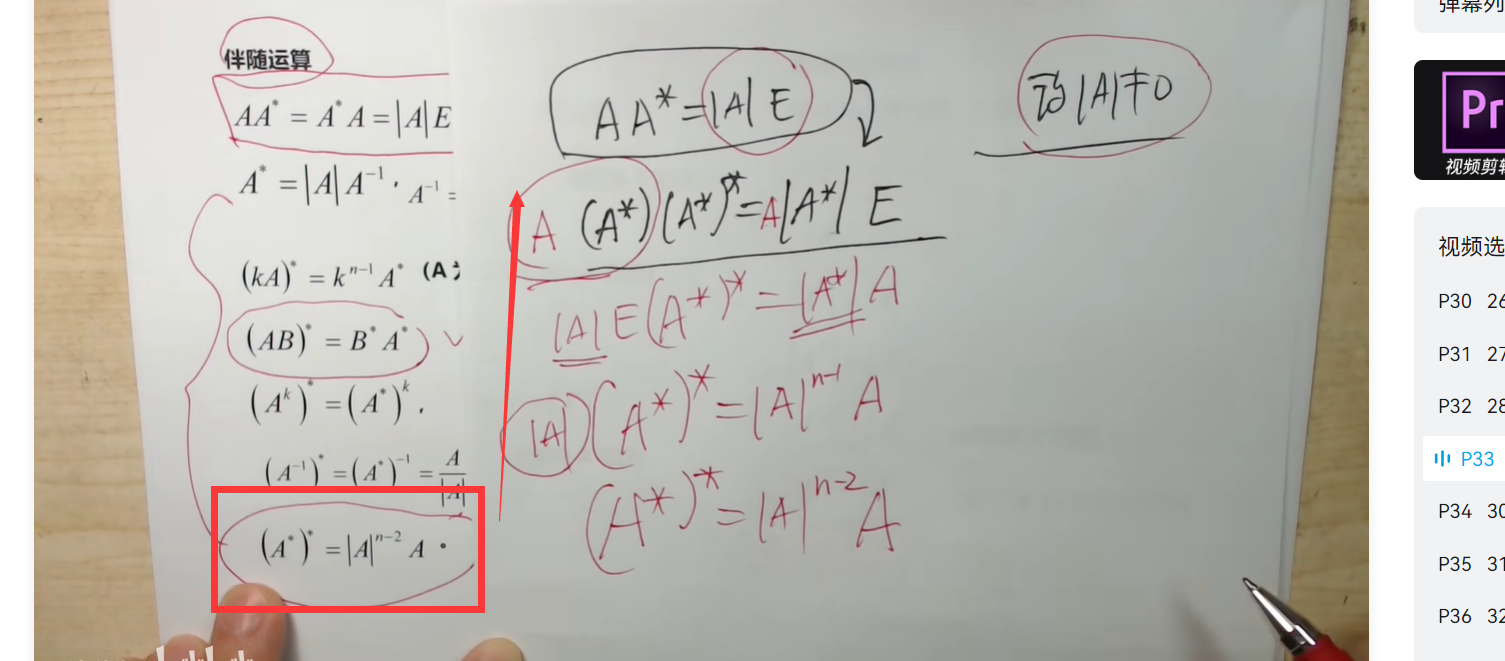 伴随运算
AA* = A*A = |A|E
A* = |A|A⁻¹ · A⁻¹ =
(kA)* = kⁿ⁻¹A* (A
(AB)* = B*A*
(Aᵏ)* = (A*)ᵏ.
(A⁻¹)* = (A*)⁻¹ = A/|A|
(A*)* = |A|ⁿ⁻² A
AA* = |A| E
A (A*)(A*)* = A|A*| E
|A| E(A*)* = |A*| A
|A|(A*)* = |A|ⁿ⁻¹ A
(A*)* = |A|ⁿ⁻² A
设|A|≠0
弹幕列
Pr
视频剪辑
视频选
P30 26
P31 27
P32 28
P33
P34 30
P35 31
P36 32